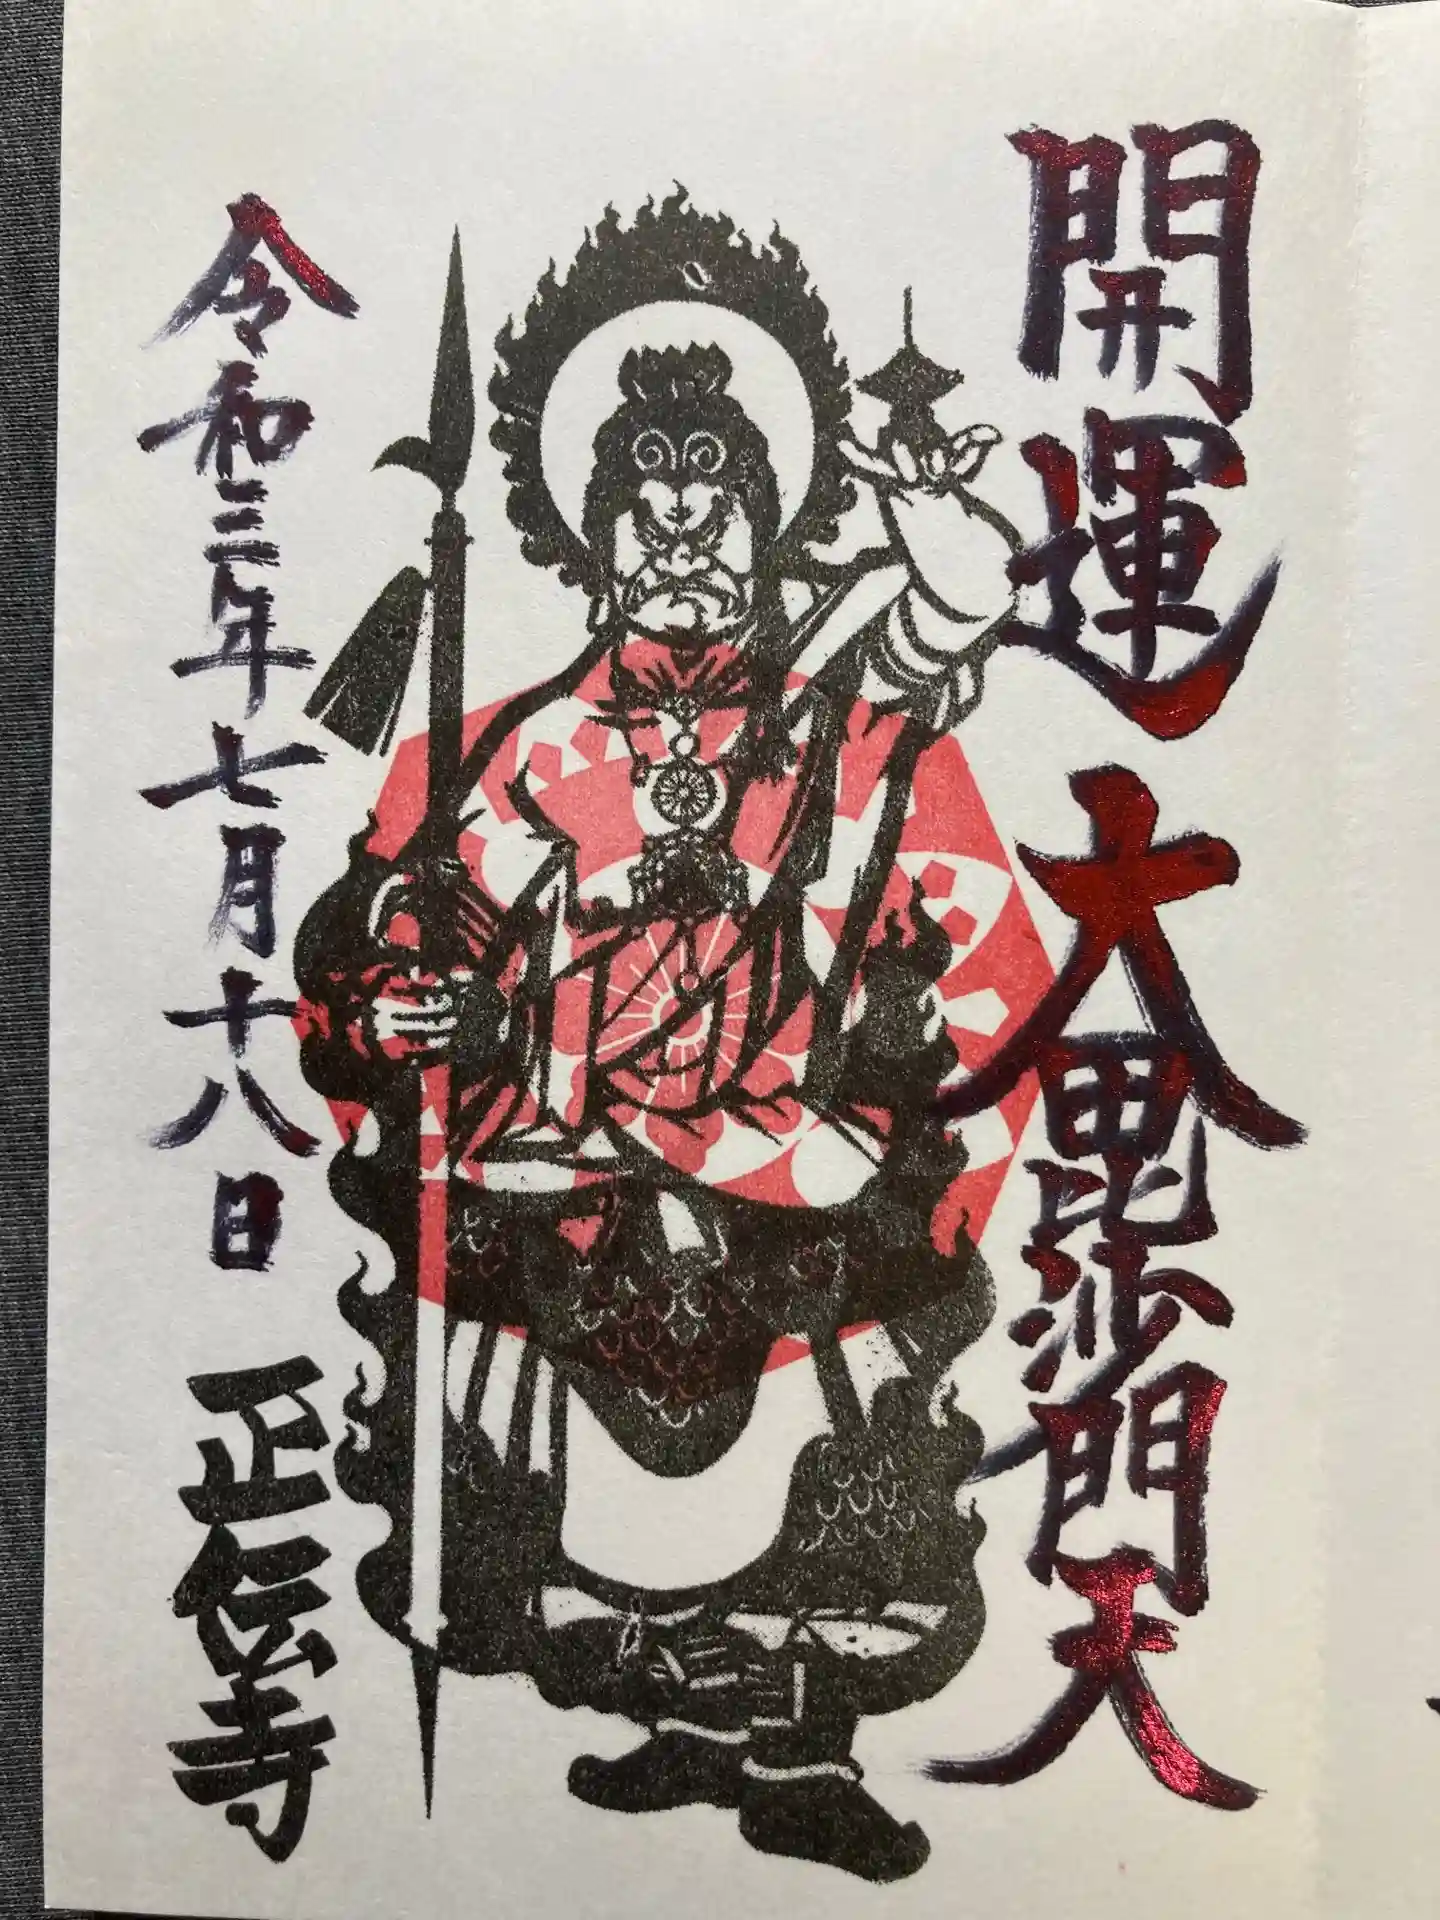 開運大毘沙門天
令和三年七月十八日
正伝寺